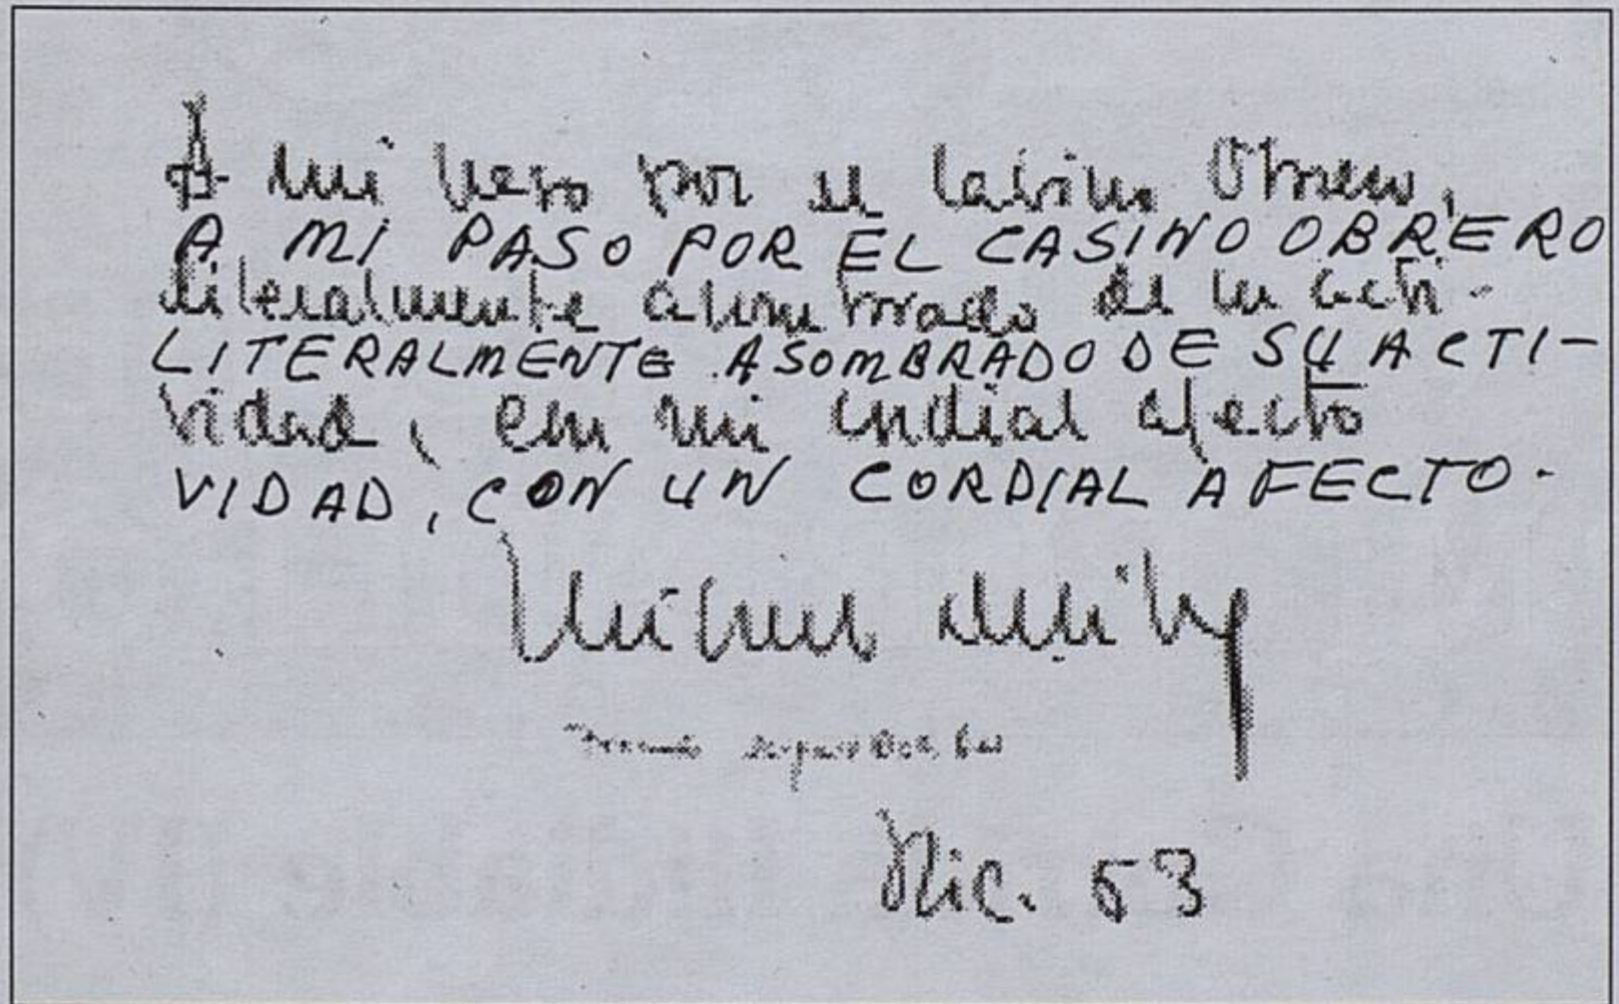 A mi paso por el Casino Obrero,
A MI PASO POR EL CASINO OBRERO
literalmente asombrado de su acti-
LITERALMENTE ASOMBRADO DE SU ACTI-
vidad, con mi cordial afecto
VIDAD, CON UN CORDIAL AFECTO.
Dic. 53